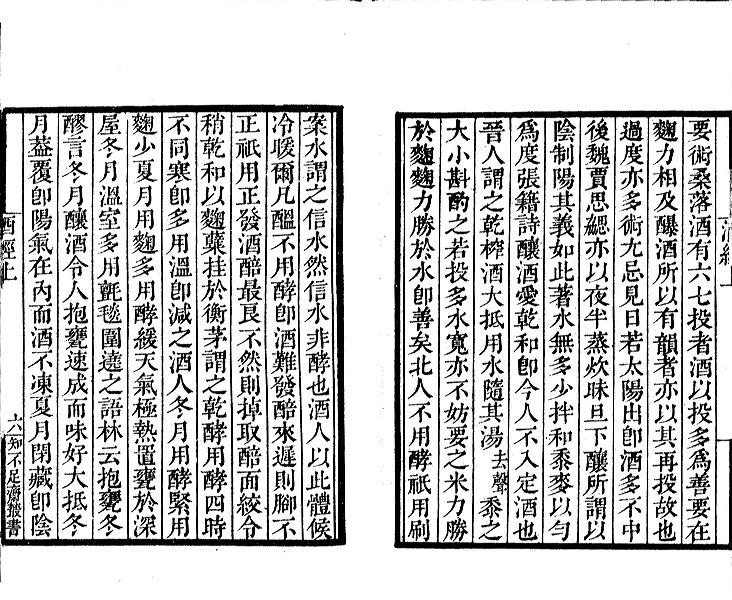 要術桑落酒有六七投者酒以投多爲善要在
麴力相及醸酒所以有韻者亦以其再投故也
過度亦多術尢忌見日若太陽出卽酒多不中
後魏賈思勰亦以夜半蒸炊昧旦下釀所謂以
陰制陽其義如此著水無多少拌和黍麥以勻
爲度張籍詩釀酒愛乾和卽今人不入定酒也
晉人謂之乾榨酒大抵用水隨其湯去聲黍之
大小斟酌之若投多水寬亦不妨要之米力勝
於麴麴力勝於水卽善矣北人不用酵祇用刷
酒經上
案水謂之信水然信水非酵也酒人以此體候
冷暖爾凡醖不用酵卽酒難發醅來遲則腳不
正祇用正發酒醅最良不然則掉取醅面絞令
稍乾和以麴櫱挂於衡茅謂之乾酵用酵四時
不同寒卽多用溫卽減之酒人冬月用酵緊用
麴少夏月用麴多用酵緩天氣極熱置甕於深
屋冬月溫室多用氈毯圍遶之語林云抱甕冬
醪言冬月釀酒令人抱甕速成而味好大抵冬
月葢覆卽陽氣在內而酒不凍夏月閉藏卽陰
酒經上
六
知不足齋叢書